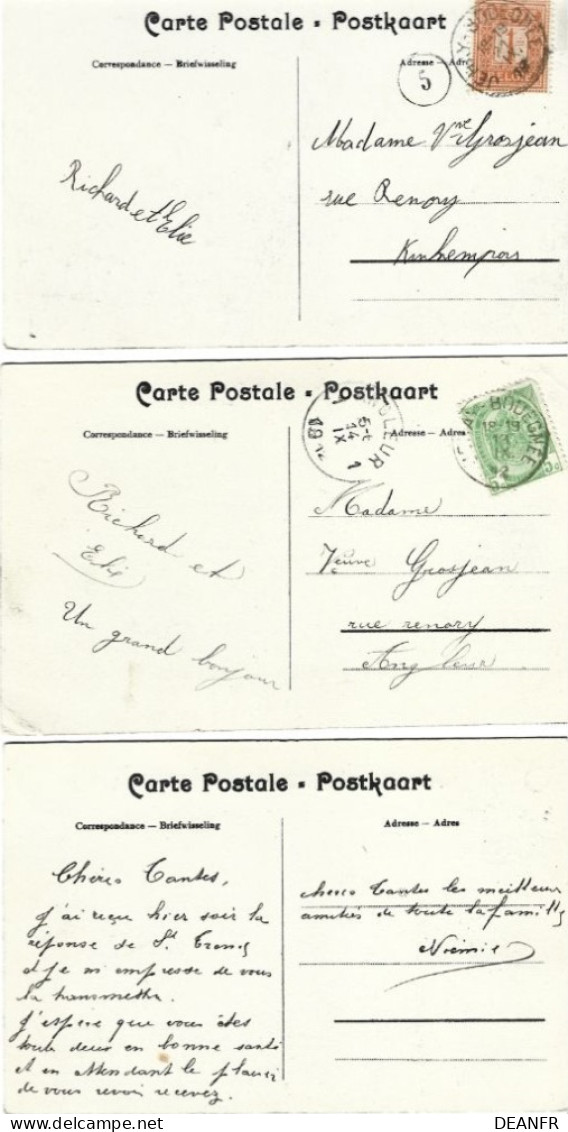 Carte Postale - Postkaart
Correspondance — Briefwisseling
Adresse — Adres
5
1
Madame Vve Grosjean
rue Renory
Kinkempois
Richard et Elie
Carte Postale - Postkaart
Correspondance — Briefwisseling
Adresse — Adres
ANGLEUR
14
IX
-BODEGNEE
18-19
13
IX
Richard et
Elie
Un grand bonjour
Madame
Veuve Grosjean
rue renory
Angleur
Carte Postale - Postkaart
Correspondance — Briefwisseling
Adresse — Adres
Chères Tantes,
j'ai reçu hier soir la
réponse de St Trond
et je m'empresse de vous
la transmettre.
J'espère que vous êtes
toute deux en bonne santé
et en attendant le plaisir
de vous revoir recevez.
cheres Tantes les meilleur
amitiés de toute la famille
Noémie
DEANFR